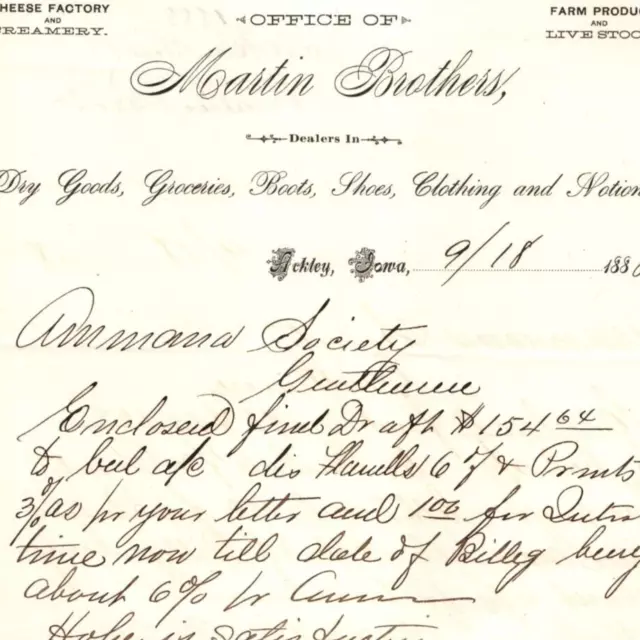 CHEESE FACTORY
AND
CREAMERY.
OFFICE OF
FARM PRODUC
AND
LIVE STOC
Martin Brothers,
Dealers In
Dry Goods, Groceries, Boots, Shoes, Clothing and Notion
Ackley, Iowa, 9/18 188
Ammana Society
Gentlemen
Enclosed find Draft $154 64
to bal a/c dis Flanells 6% & Prints
3% as pr your letter and 1 00 for
time now till date of Billeg being
about 6% pr Annum
Hope is satisfactory